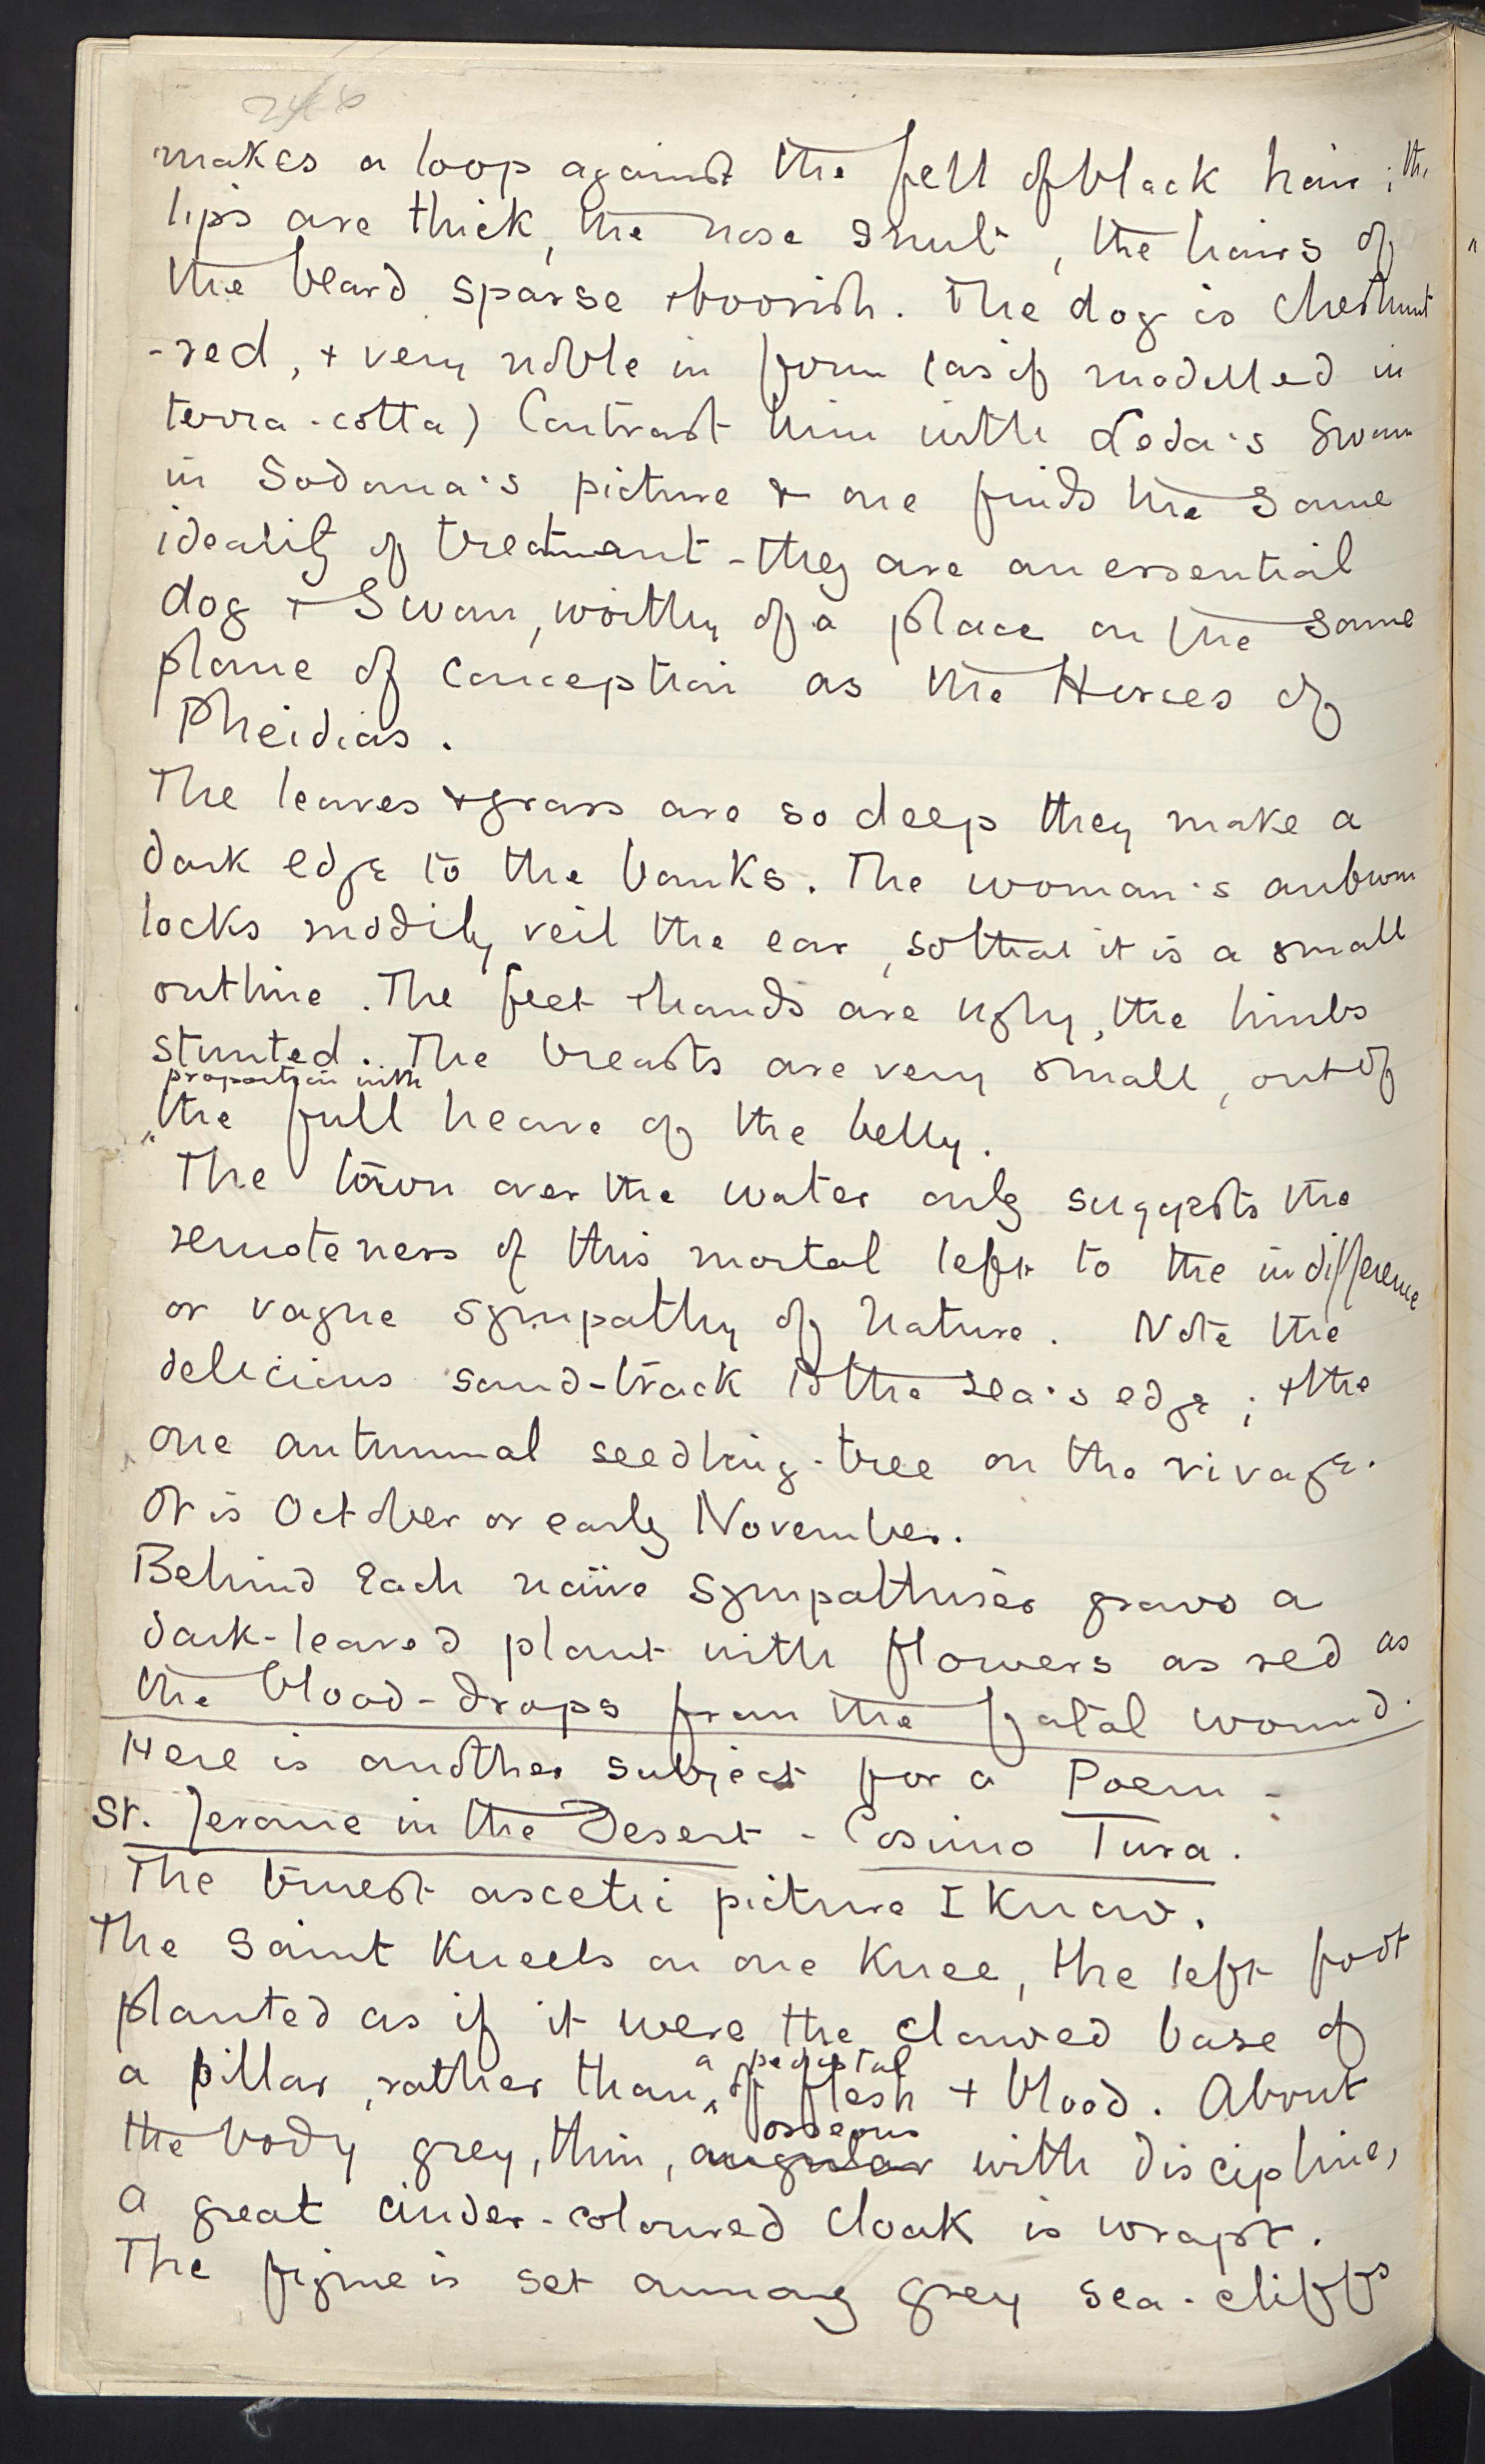 makes a loop against the fell of black hair; the
lips are thick, the nose snub, the hairs of
the beard sparse & boorish. The dog is chestnut
-red, + very noble in form (as if modelled in
terra-cotta) Contrast him with Leda's Swan
in Sodoma's picture & one finds the same
ideality of treatment - they are an essential
dog + Swan, worthy of a place on the same
plane of conception as the Horses of
Pheidias.
The leaves & grass are so deep they make a
dark edge to the banks. The woman's auburn
locks modily veil the ear, so that it is a small
outline. The feet + hands are ugly, the limbs
stunted. The breasts are very small, out of
proportion with
the full heave of the belly.
The town over the water only suggests the
remoteness of this mortal left to the indifference
or vague sympathy of Nature. Note the
delicious sand-track to the sea's edge; + the
one autumnal seedling-tree on the rivage.
It is October or early November.
Behind Each naïve sympathiser grows a
dark-leaved plant with flowers as red as
the blood-drops from the fatal wound.
Here is another subject for a Poem -
St. Jerome in the Desert - Cosimo Tura.
The truest ascetic picture I know.
The Saint Kneels on one Knee, the left foot
planted as if it were the clawed base of
a pillar, rather than a pedestal of flesh + blood. About
the body grey, thin, angular osseous with discipline,
a great cinder-coloured cloak is wrapt.
The figure is set among grey sea-cliffs